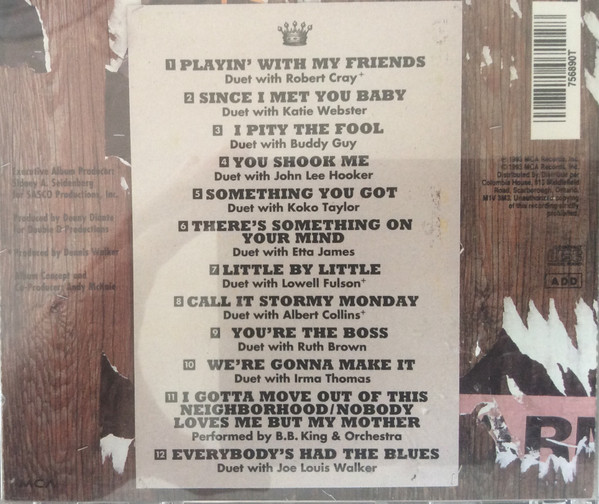 1 PLAYIN' WITH MY FRIENDS
Duet with Robert Cray+
2 SINCE I MET YOU BABY
Duet with Katie Webster
3 I PITY THE FOOL
Duet with Buddy Guy
4 YOU SHOOK ME
Duet with John Lee Hooker
5 SOMETHING YOU GOT
Duet with Koko Taylor
6 THERE'S SOMETHING ON
YOUR MIND
Duet with Etta James
7 LITTLE BY LITTLE
Duet with Lowell Fulson+
8 CALL IT STORMY MONDAY
Duet with Albert Collins+
9 YOU'RE THE BOSS
Duet with Ruth Brown
10 WE'RE GONNA MAKE IT
Duet with Irma Thomas
11 I GOTTA MOVE OUT OF THIS
NEIGHBORHOOD/NOBODY
LOVES ME BUT MY MOTHER
Performed by B.B. King & Orchestra
12 EVERYBODY'S HAD THE BLUES
Duet with Joe Louis Walker
Executive Album Producer:
Sidney A. Seidenberg
for SASCO Productions, Inc.
Produced by Denny Diante
for Double D Productions
Produced by Dennis Walker
Album Concept and
Co-Producer: Andy McKaie
MCA
756890T
1993 MCA Records, Inc.
1993 MCA Records, Inc.
Distributed by
Columbia House,
Scarborough, Ontario
M1V 5M3. Unauthorized copying
of this recording strictly
prohibited.
ADD